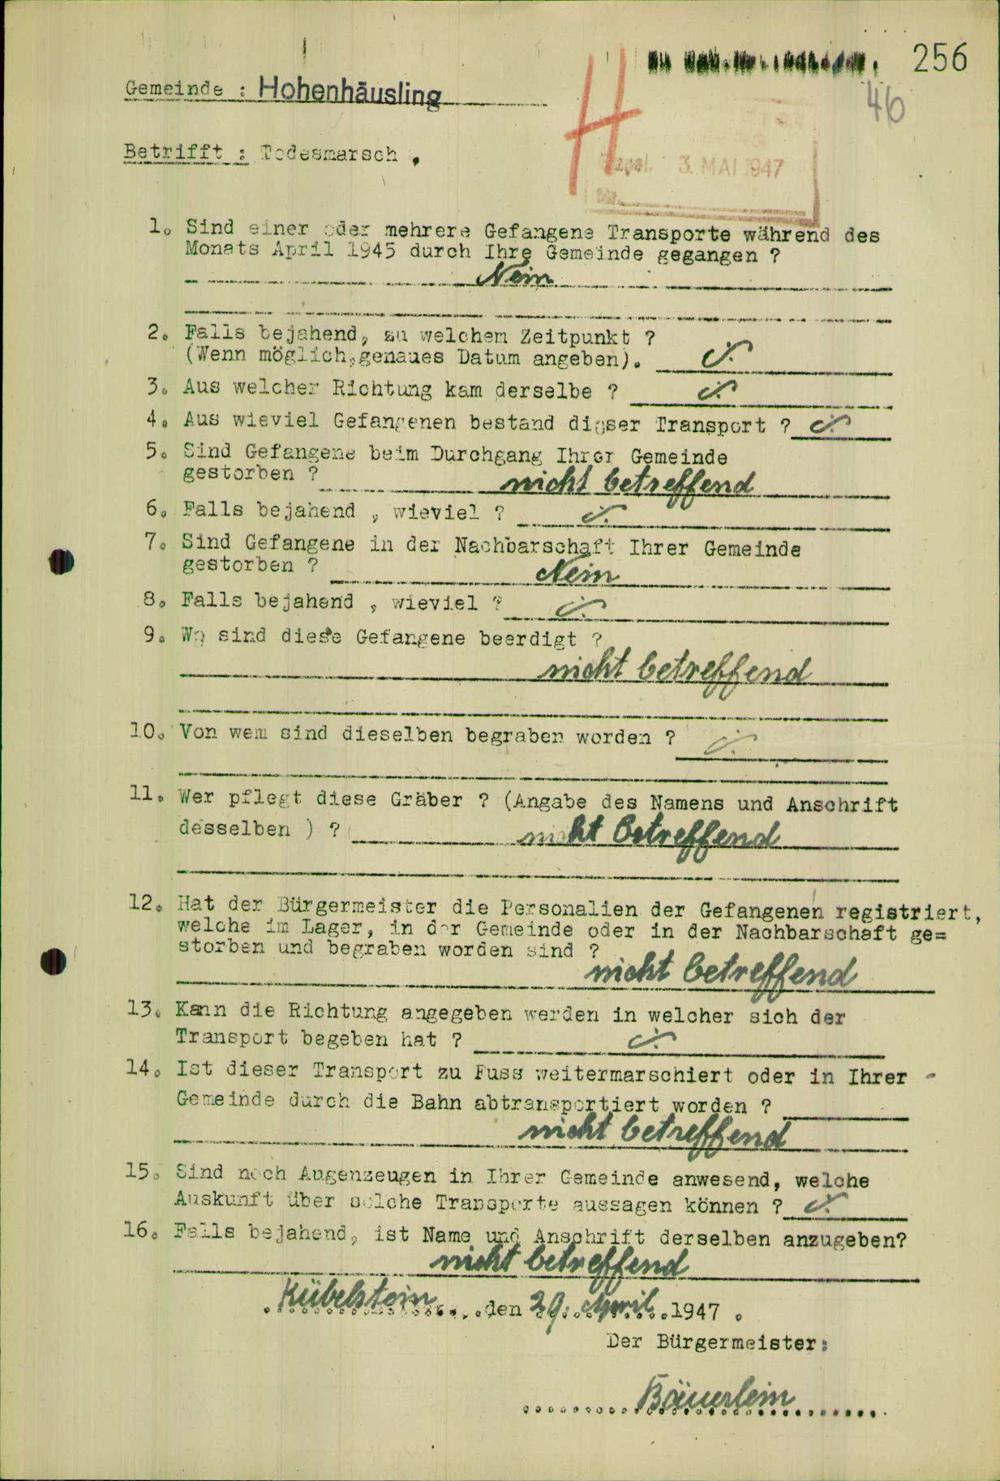 256
46
Gemeinde : Hohenhäusling
H
Betrifft : Todesmarsch .
3. MAI 1947
1. Sind einer oder mehrere Gefangene Transporte während des
Monats April 1945 durch Ihre Gemeinde gegangen ?
Nein
2. Falls bejahend, zu welchem Zeitpunkt ?
(Wenn möglich, genaues Datum angeben).
3. Aus welcher Richtung kam derselbe ?
4. Aus wieviel Gefangenen bestand dieser Transport ?
5. Sind Gefangene beim Durchgang Ihrer Gemeinde
gestorben ? nicht betreffend
6. Falls bejahend , wieviel ?
7. Sind Gefangene in der Nachbarschaft Ihrer Gemeinde
gestorben ? Nein
8. Falls bejahend , wieviel ?
9. Wo sind diese Gefangene beerdigt ?
nicht betreffend
10. Von wem sind dieselben begraben worden ?
11. Wer pflegt diese Gräber ? (Angabe des Namens und Anschrift
desselben ) ? nicht betreffend
12. Hat der Bürgermeister die Personalien der Gefangenen registriert,
welche im Lager, in der Gemeinde oder in der Nachbarschaft ge=
storben und begraben worden sind ?
nicht betreffend
13. Kann die Richtung angegeben werden in welcher sich der
Transport begeben hat ?
14. Ist dieser Transport zu Fuss weitermarschiert oder in Ihrer -
Gemeinde durch die Bahn abtransportiert worden ?
nicht betreffend
15. Sind noch Augenzeugen in Ihrer Gemeinde anwesend, welche
Auskunft über solche Transporte aussagen können ?
16. Falls bejahend, ist Name und Anschrift derselben anzugeben?
nicht betreffend
Kübelstein, den 29. April 1947 .
Der Bürgermeister:
Bäuerlein